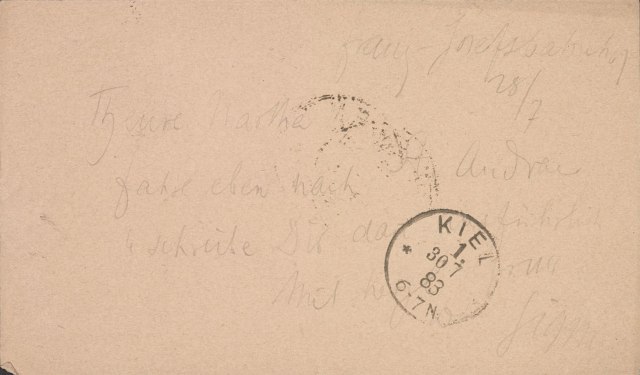 Franz-Josefsbahnhof
28/7
Theure Martha
fahre eben nach St. Andrae
u schreibe Dir da ausführlich
Mit
KIEL
1.
* 30 7
83
6-7N